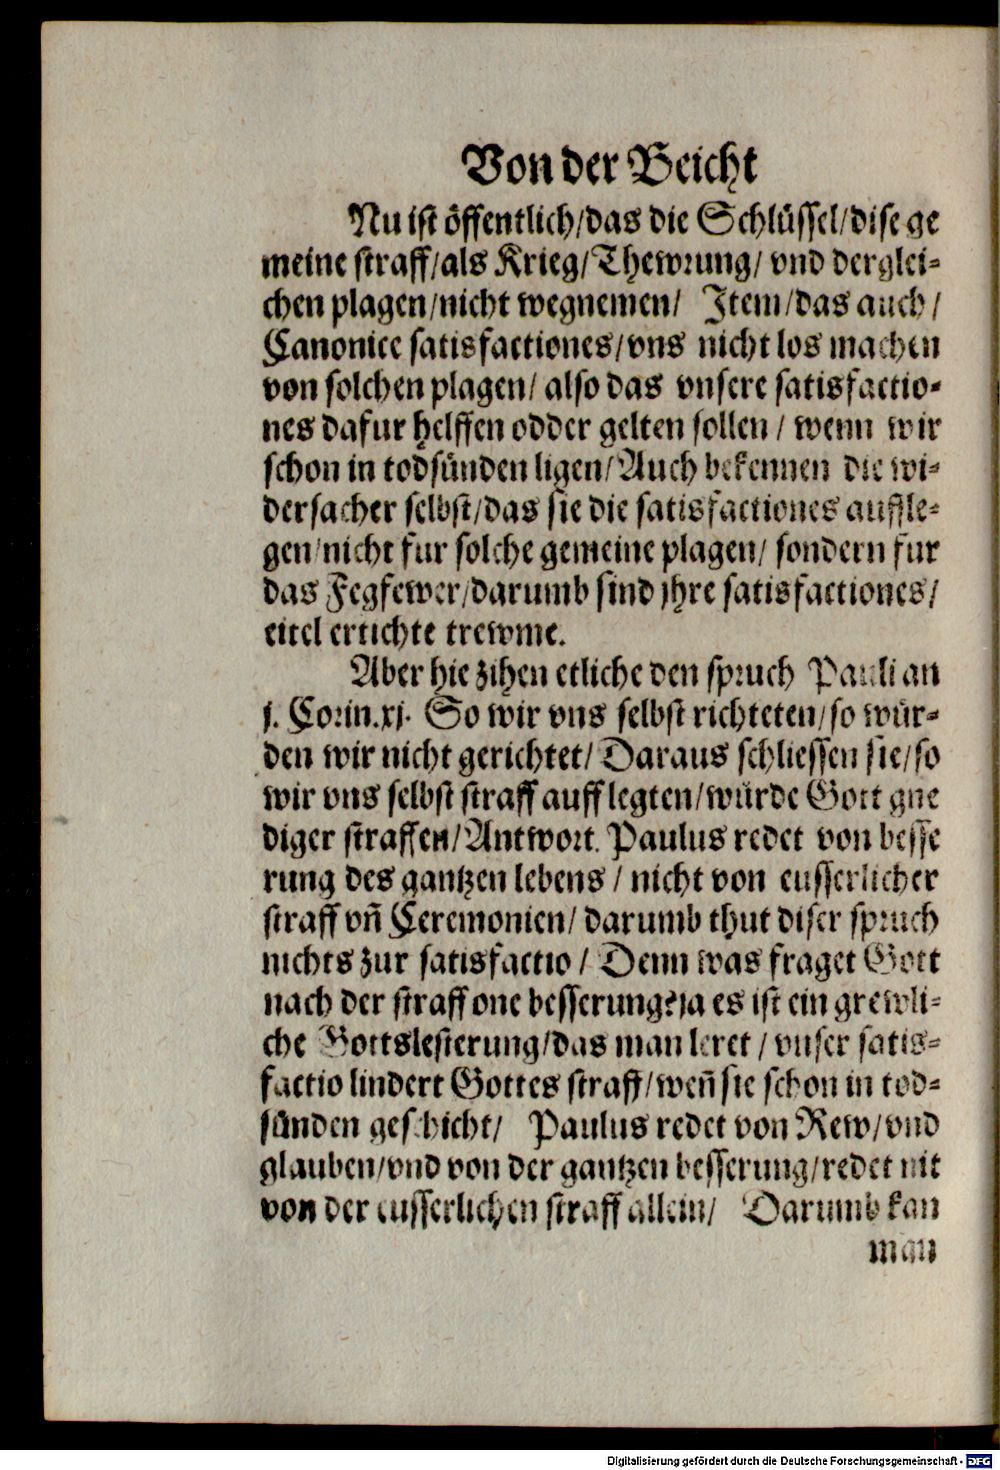 Von der Beicht
Nu ist öffentlich/das die Schlüssel/dise ge
meine straff/als Krieg/Thewrung/ vnd derglei-
chen plagen/nicht wegnemen/ Item/das auch/
Canonice satisfactiones/vns nicht los machen
von solchen plagen/ also das vnsere satisfactio-
nes dafur helffen odder gelten sollen / wenn wir
schon in todsünden ligen/Auch bekennen die wi-
dersacher selbst/das sie die satisfactiones auffle-
gen/nicht fur solche gemeine plagen/ sondern fur
das Fegfewer/darumb sind jhre satisfactiones/
eitel ertichte trewme.
Aber hie zihen etliche den spruch Pauli an
j. Corin.xj. So wir vns selbst richteten/so wür-
den wir nicht gerichtet/ Daraus schliessen sie/so
wir vns selbst straff auff legten/würde Gott gne
diger straffen/Antwort. Paulus redet von besse
rung des gantzen lebens / nicht von eusserlicher
straff vñ Ceremonien/ darumb thut diser spruch
nichts zur satisfactio / Denn was fraget Gott
nach der straff one besserung? ja es ist ein grewli-
che Gottslesterung/das man leret / vnser satis-
factio lindert Gottes straff/weñ sie schon in tod-
sünden geschicht/ Paulus redet von Rew/vnd
glauben/vnd von der gantzen besserung/redet nit
von der eusserlichen straff allein/ Darumb kan
man
Digitalisierung gefördert durch die Deutsche Forschungsgemeinschaft - DFG